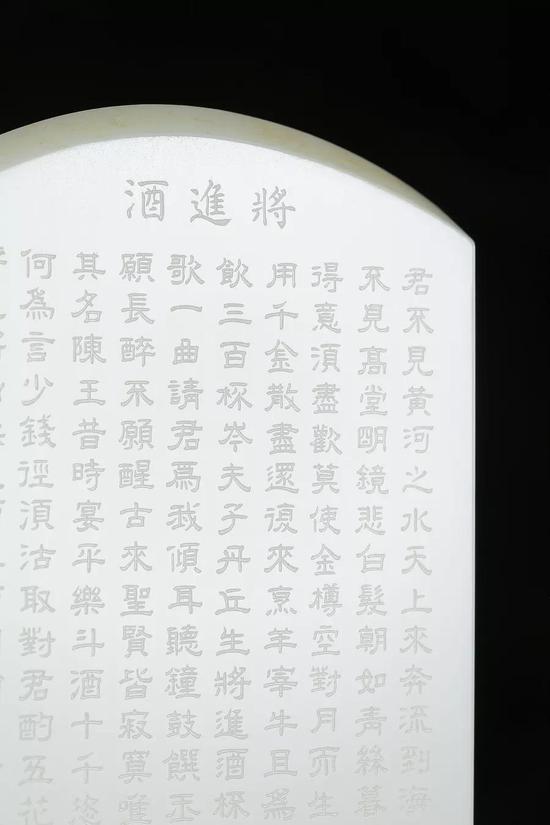 將進酒
君不見黃河之水天上來奔流到海
不見高堂明鏡悲白髮朝如青絲暮
得意須盡歡莫使金樽空對月而生
用千金散盡還復來烹羊宰牛且爲
飲三百杯岑夫子丹丘生將進酒杯
歌一曲請君爲我傾耳聽鐘鼓饌玉
願長醉不願醒古來聖賢皆寂寞唯
其名陳王昔時宴平樂斗酒十千恣
何爲言少錢徑須沽取對君酌五花